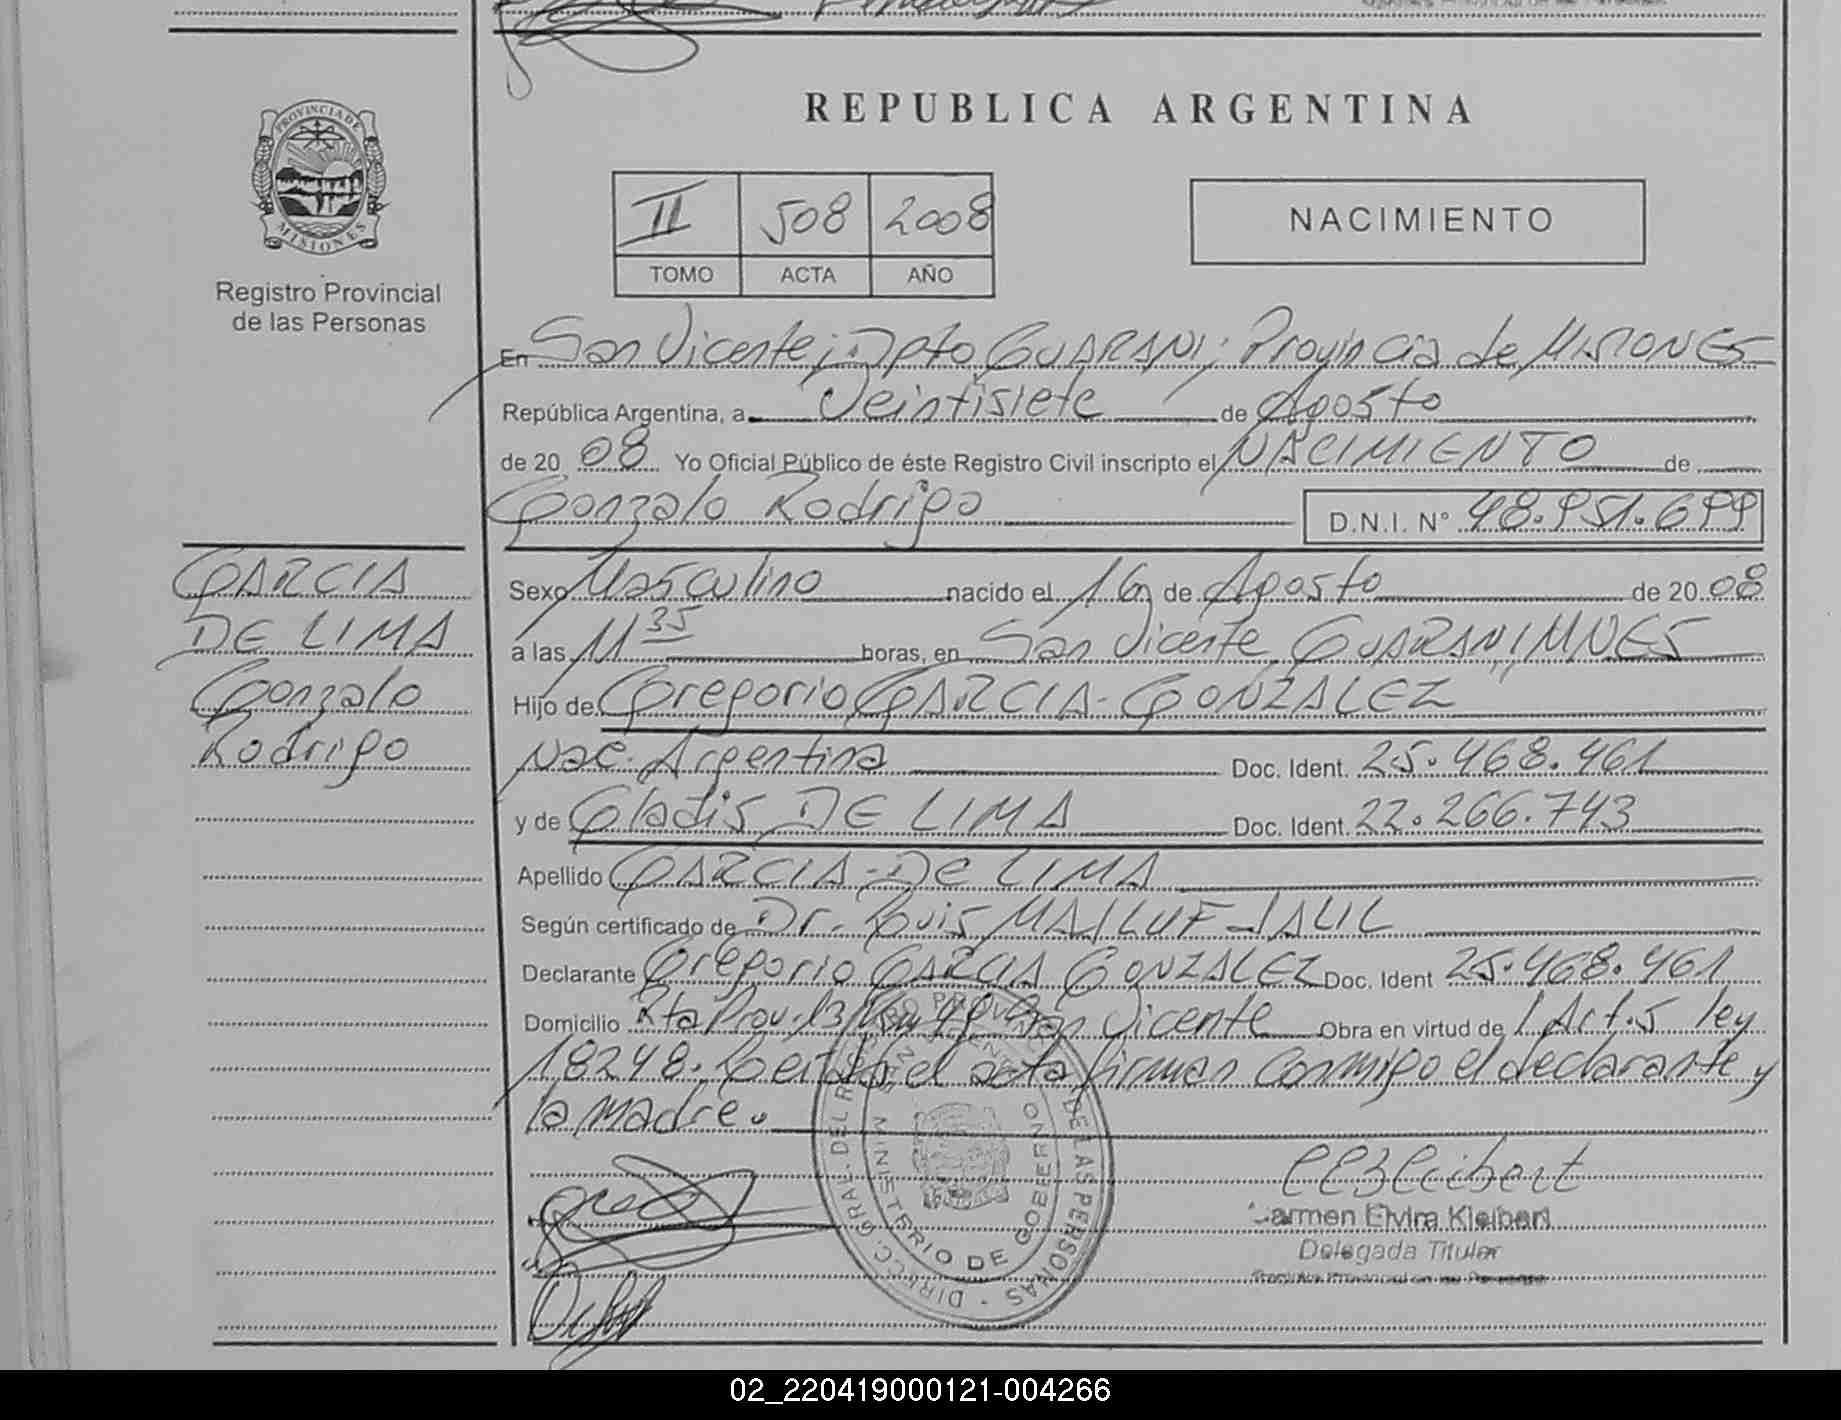 PROVINCIA DE
MISIONES
Registro Provincial
de las Personas
REPUBLICA ARGENTINA
II 508 2008
TOMO ACTA AÑO
NACIMIENTO
En San Vicente; Dpto GUARANI; Provincia de MISIONES
República Argentina, a Veintisiete de Agosto
de 20 08 Yo Oficial Público de éste Registro Civil inscripto el NACIMIENTO de
Gonzalo Rodrigo D.N.I. N° 48.951.699
GARCIA
DE LIMA
Gonzalo
Rodrigo
Sexo Masculino nacido el 16 de Agosto de 20 08
a las 11 35 horas, en San Vicente, GUARANI, MNES
Hijo de Gregorio GARCIA-GONZALEZ
Nac. Argentina Doc. Ident. 25.468.461
y de Gladis DE LIMA Doc. Ident. 22.266.743
Apellido GARCIA-DE LIMA
Según certificado de Dr. Luis MAILUF JALIL
Declarante Gregorio GARCIA GONZALEZ Doc. Ident 25.468.461
Domicilio Rta Prov. 13 Km 49 San Vicente Obra en virtud de l Art. 5 ley
18248. Leida el acta firman conmigo el declarante y
la madre.
DIRECC. GRAL. DEL REGISTRO PROVINCIAL DE LAS PERSONAS
MINISTERIO DE GOBERNO
Carmen Elvira Kleibert
Delegada Titular
Registro Provincial de las Personas
02_220419000121-004266